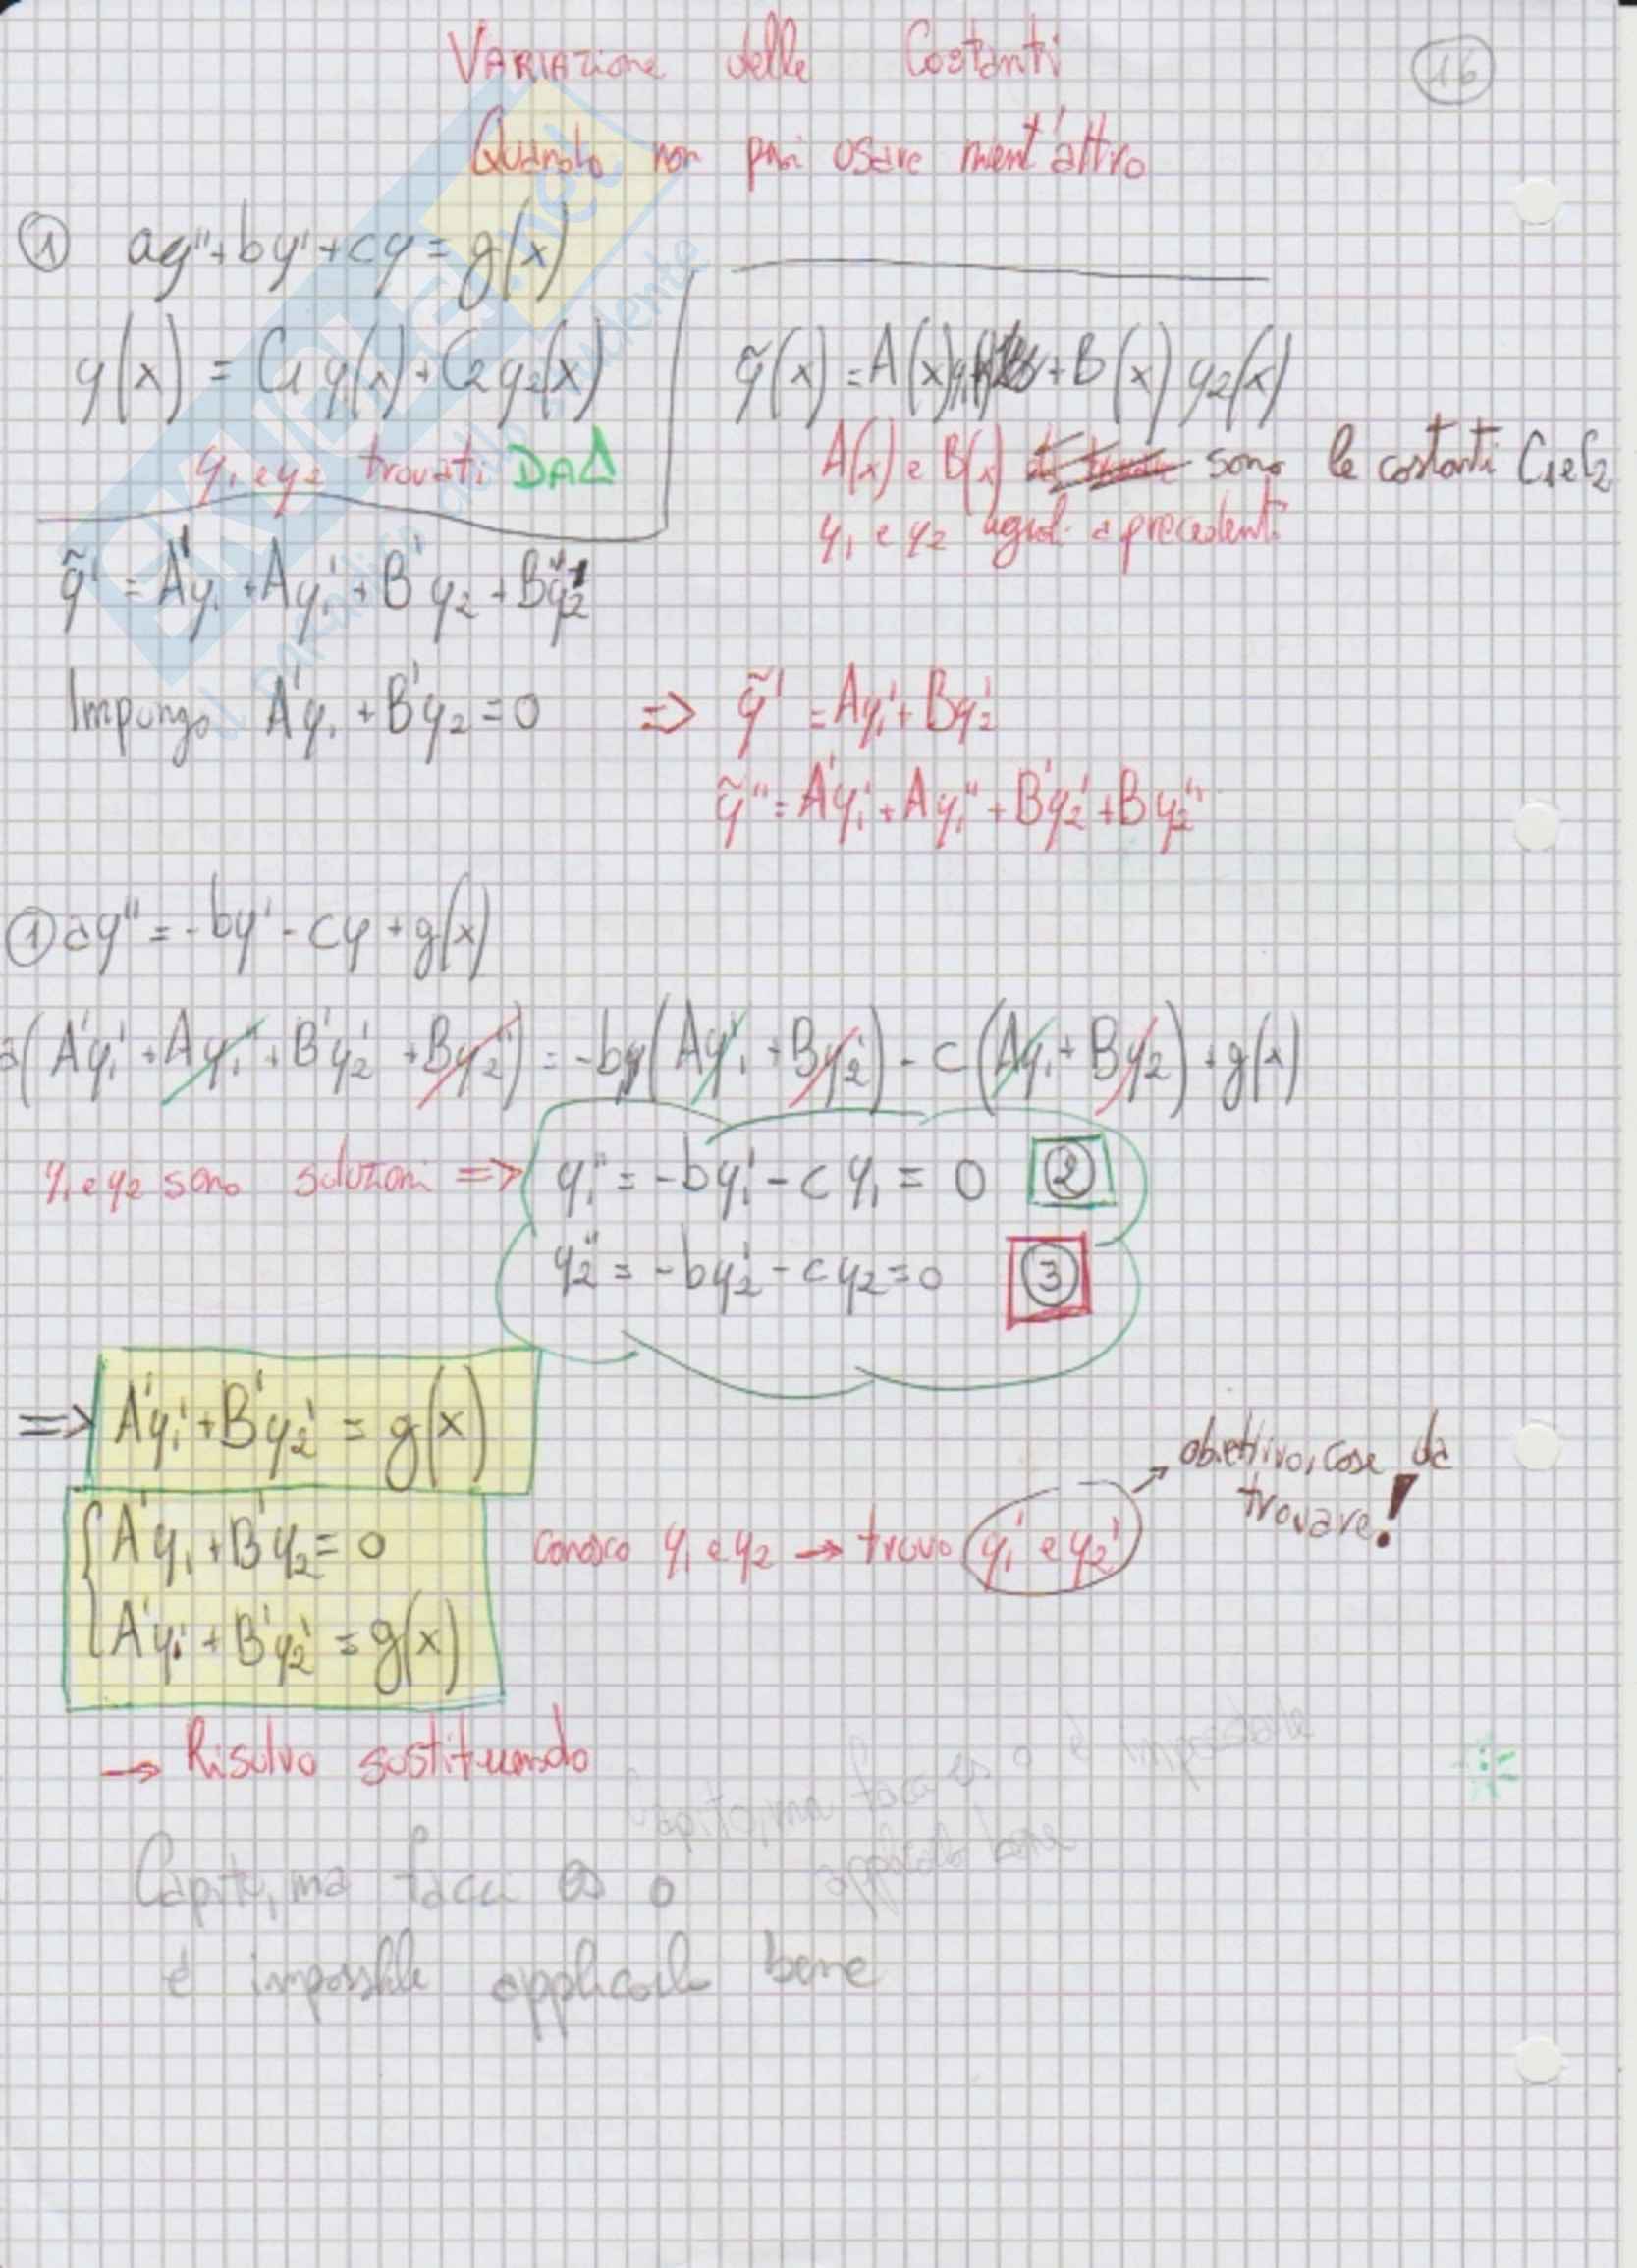 Variazione delle Costanti
16
Quando non puoi usare nient'altro
① ay''+by'+cy = g(x)
y(x) = C1 y1(x) + C2 y2(x)
y1 e y2 trovati DA Δ
ỹ(x) = A(x)y1(x) + B(x) y2(x)
A(x) e B(x) sono le costanti C1 e C2
y1 e y2 uguali a precedenti
ỹ' = A'y1 + Ay1' + B'y2 + By2'
Impongo A'y1 + B'y2 = 0 => ỹ' = Ay1' + By2'
ỹ'' = A'y1' + Ay1'' + B'y2' + By2''
① ay'' = -by' - cy + g(x)
a(A'y1' + Ay1'' + B'y2' + By2'') = -b(Ay1' + By2') - c(Ay1 + By2) + g(x)
y1 e y2 sono soluzioni => y1'' = -by1' - cy1 = 0 ②
y2'' = -by2' - cy2 = 0 ③
=> A'y1' + B'y2' = g(x)
{ A'y1 + B'y2 = 0
A'y1' + B'y2' = g(x)
conosco y1 e y2 → trovo y1' e y2'
→ obiettivo, cose da trovare!
→ Risolvo sostituendo
Capito, ma facci es o è impossibile
applicarlo bene
Capito, ma facci es o
è impossibile applicarlo bene
SKUOLA.net